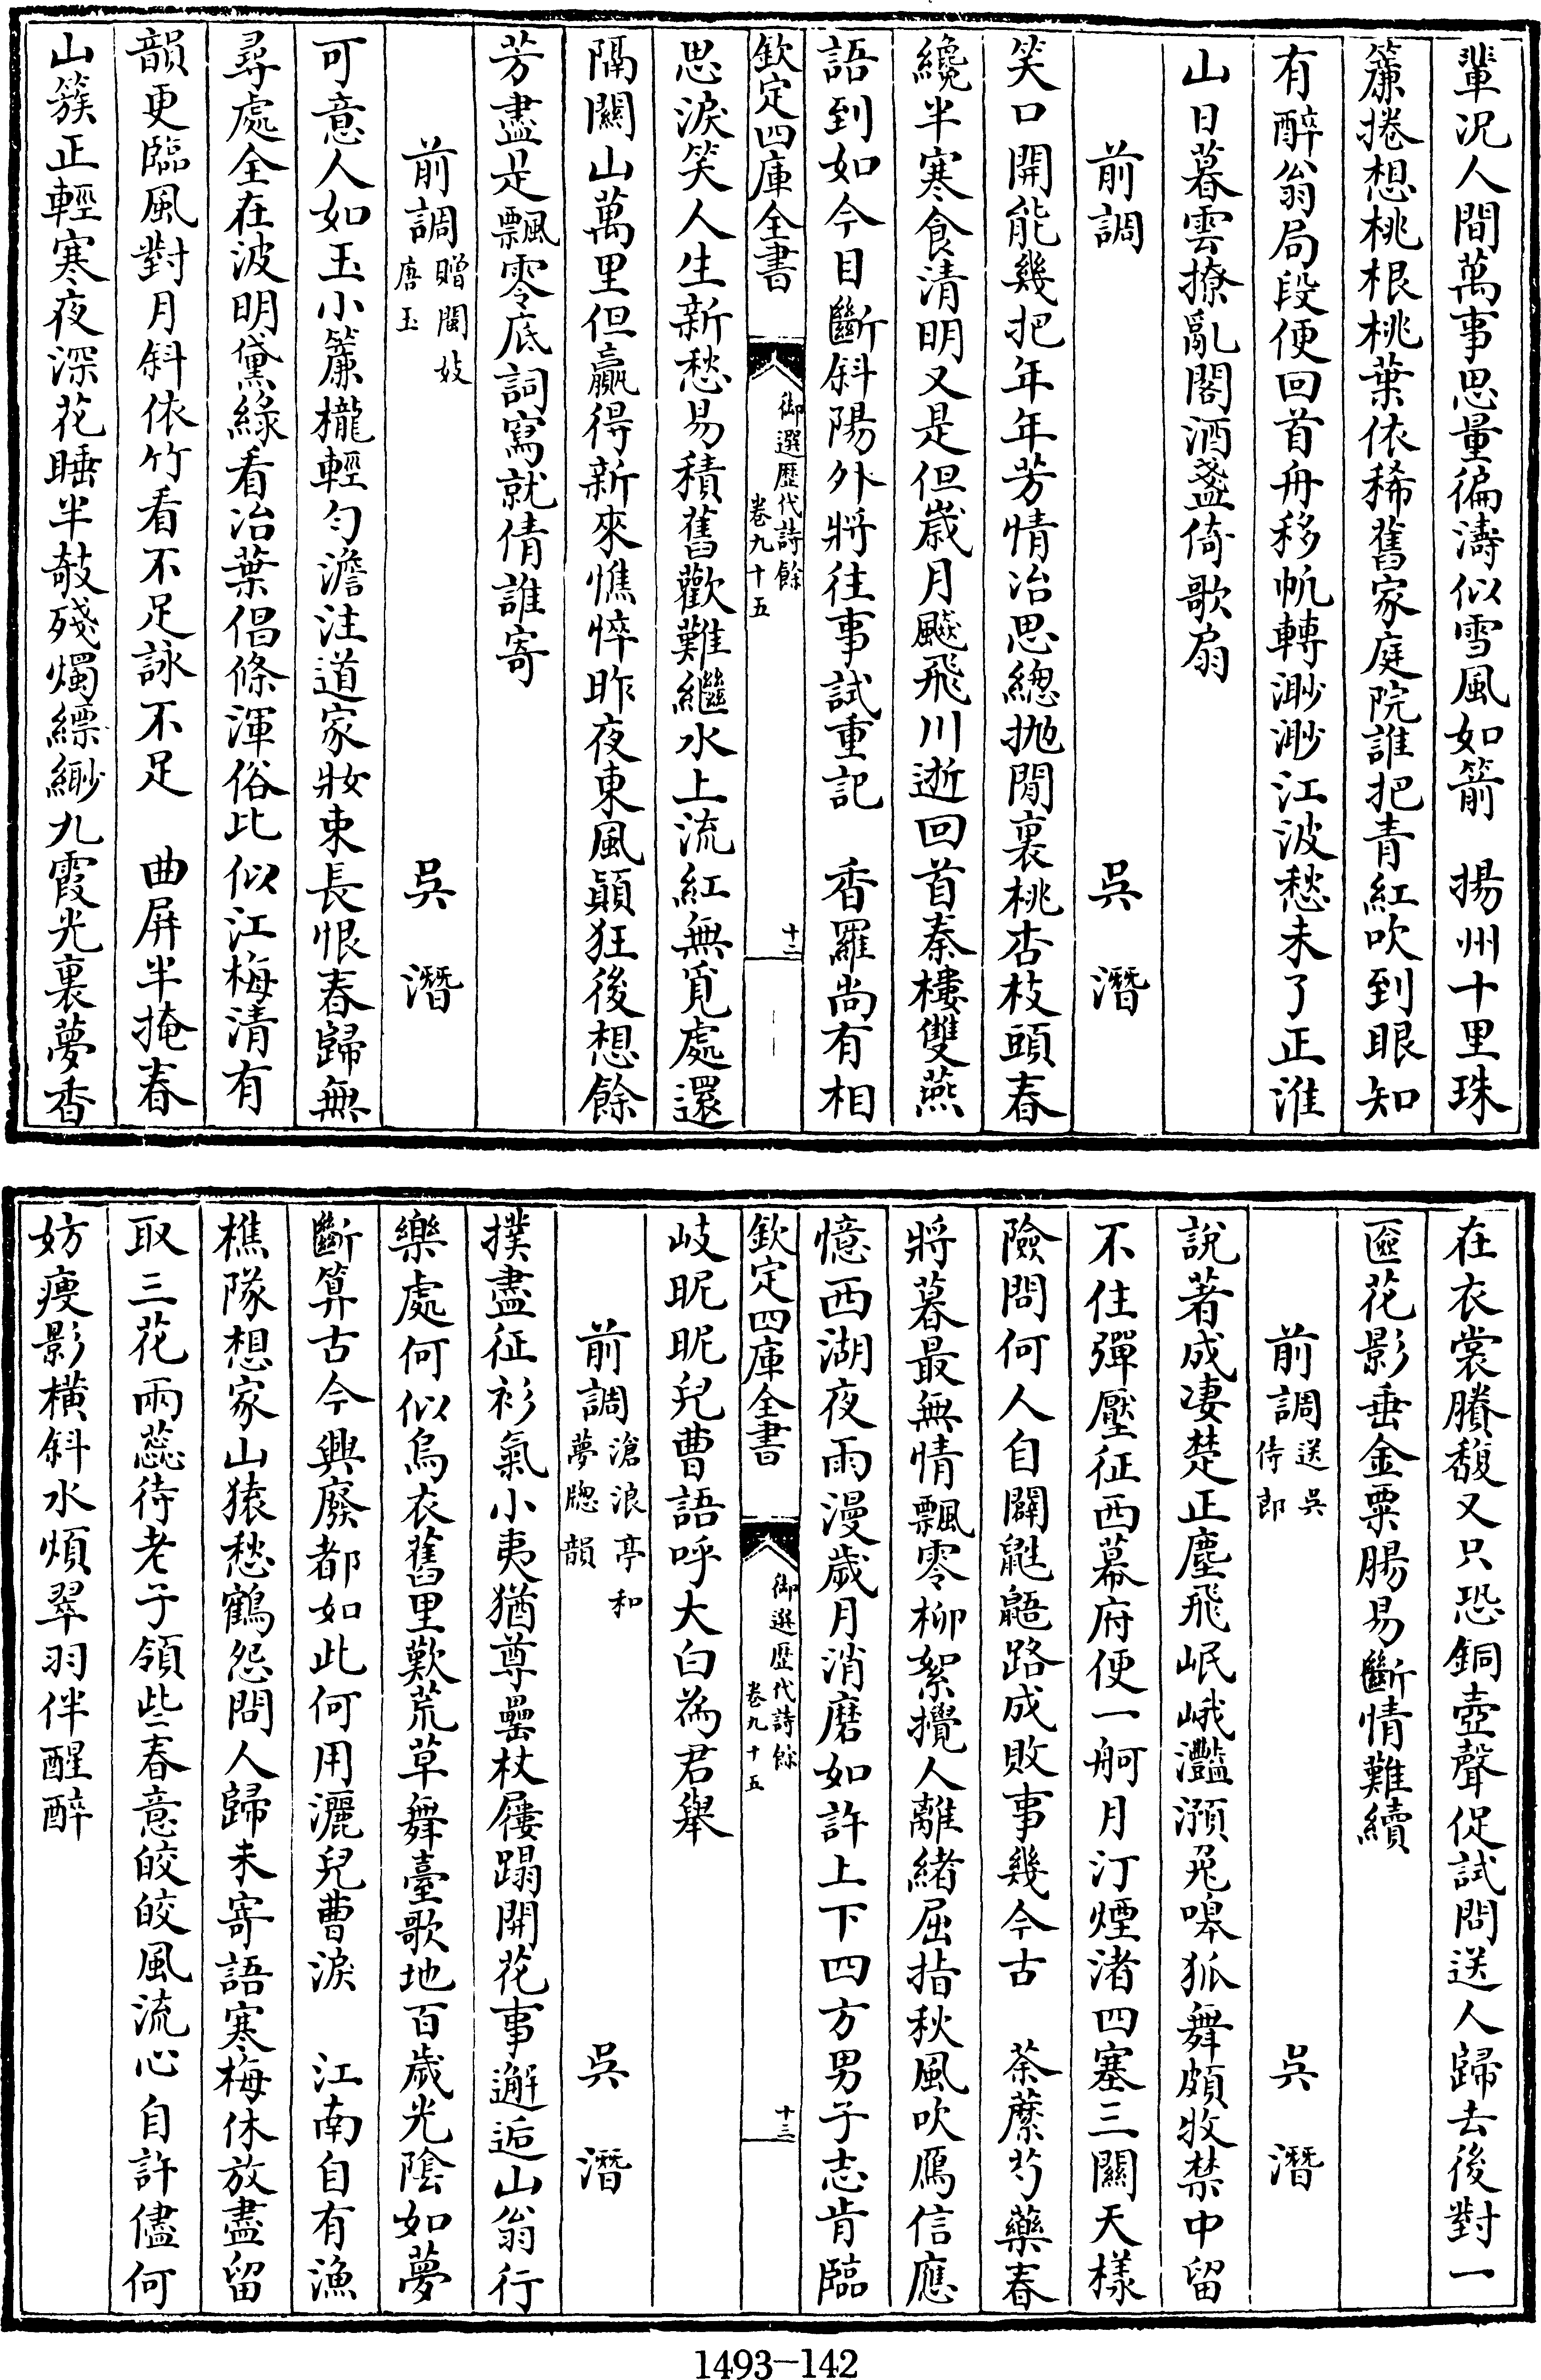 輩況人間萬事思量徧濤似雪風如箭　揚州十里珠
簾捲想桃根桃葉依稀舊家庭院誰把青紅吹到眼知
有醉翁局段便回首舟移帆轉渺渺江波愁未了正淮
山日暮雲撩亂閣酒盞倚歌扇
前調　吳潛
笑口開能幾把年年芳情冶思緫抛閒裏桃杏枝頭春
纔半寒食清明又是但歲月飈飛川逝回首秦樓雙燕
語到如今目斷斜陽外將往事試重記　香羅尚有相
欽定四庫全書　御選歷代詩餘　卷九十五　十二
思淚笑人生新愁易積舊歡難繼水上流紅無覓處還
隔關山萬里但贏得新來憔悴昨夜東風顛狂後想餘
芳盡是飄零底詞寫就倩誰寄
前調　贈閩妓唐玉　吳潛
可意人如玉小簾櫳輕勻澹注道家妝束長恨春歸無
尋處全在波明黛綠看冶葉倡條渾俗比似江梅清有
韻更臨風對月斜依竹看不足詠不足　曲屏半掩春
山簇正輕寒夜深花睡半敧殘燭縹緲九霞光裏夢香
在衣裳賸馥又只恐銅壺聲促試問送人歸去後對一
匳花影垂金粟腸易斷情難續
前調　送吳侍郎　吳潛
說著成凄楚正塵飛岷峨灩澦兎嘷狐舞頗牧禁中留
不住彈壓征西幕府便一舸月汀煙渚四塞三關天樣
險問何人自闢鼪鼯路成敗事幾今古　荼蘼芍藥春
將暮最無情飄零柳絮攪人離緒屈指秋風吹鴈信應
憶西湖夜雨漫歲月消磨如許上下四方男子志肯臨
欽定四庫全書　御選歷代詩餘　卷九十五　十三
岐昵昵兒曹語呼大白為君舉
前調　滄浪亭和夢牎韻　吳潛
撲盡征衫氣小夷猶尊罍杖屨蹋開花事邂逅山翁行
樂處何似烏衣舊里歎荒草舞臺歌地百歲光陰如夢
斷算古今興廢都如此何用灑兒曹淚　江南自有漁
樵隊想家山猿愁鶴怨問人歸未寄語寒梅休放盡留
取三花兩蕊待老子領些春意皎皎風流心自許儘何
妨痩影橫斜水煩翠羽伴醒醉
1493-142